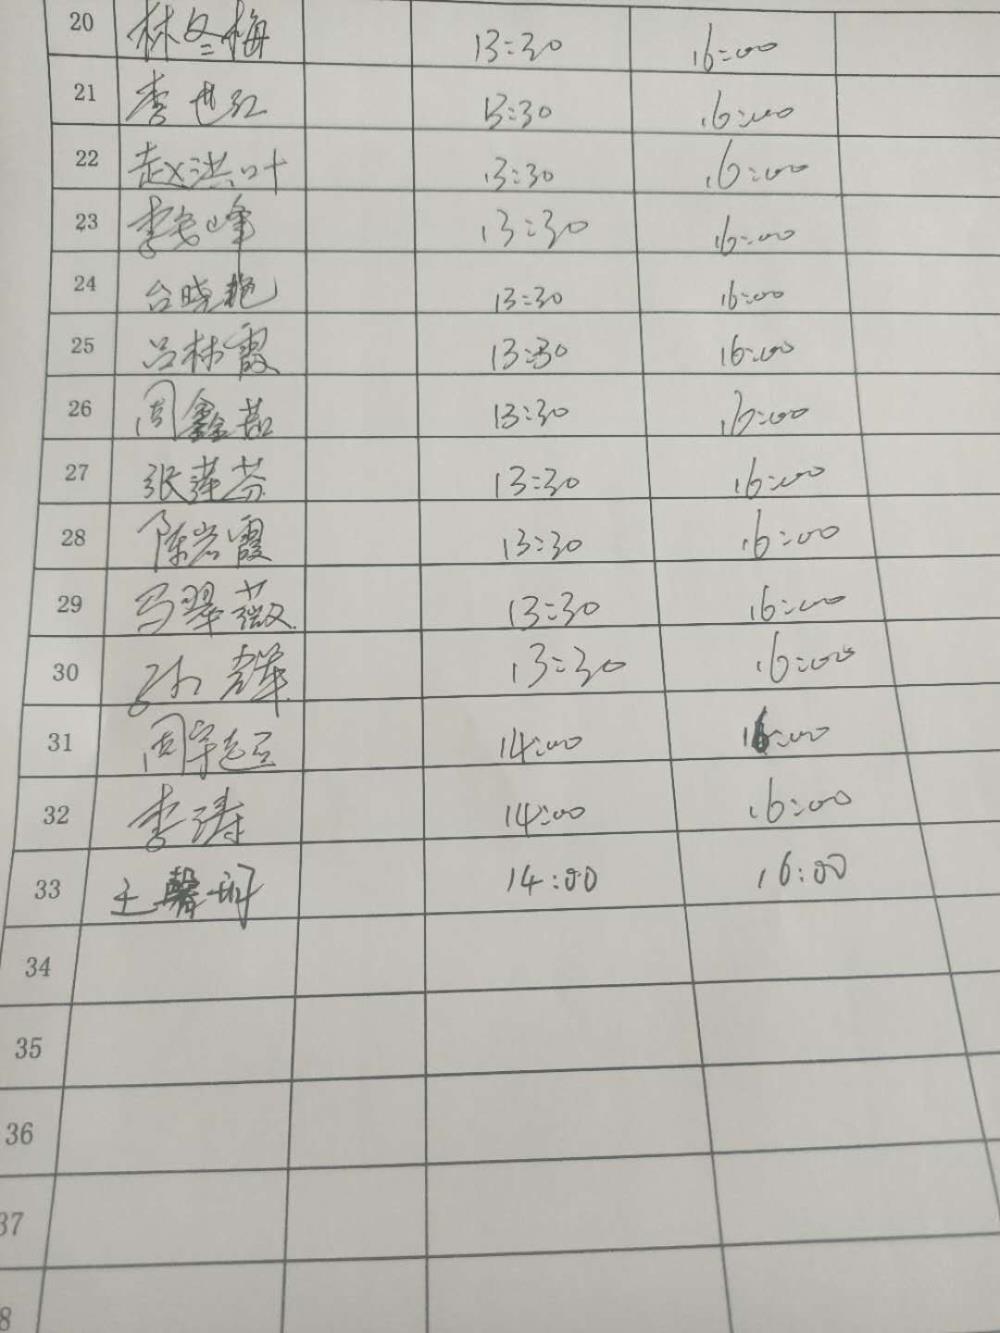 20 林冬梅 13:30 16:00
21 李世红 13:30 16:00
22 赵洪叶 13:30 16:00
23 李 峰 13:30 16:00
24 台晓艳 13:30 16:00
25 吕林霞 13:30 16:00
26 周鑫茹 13:30 16:00
27 张萍芬 13:30 16:00
28 陈岩霞 13:30 16:00
29 马翠薇 13:30 16:00
30 13:30 16:00
31 周宇 14:00 16:00
32 李涛 14:00 16:00
33 王馨 14:00 16:00
34
35
36
37